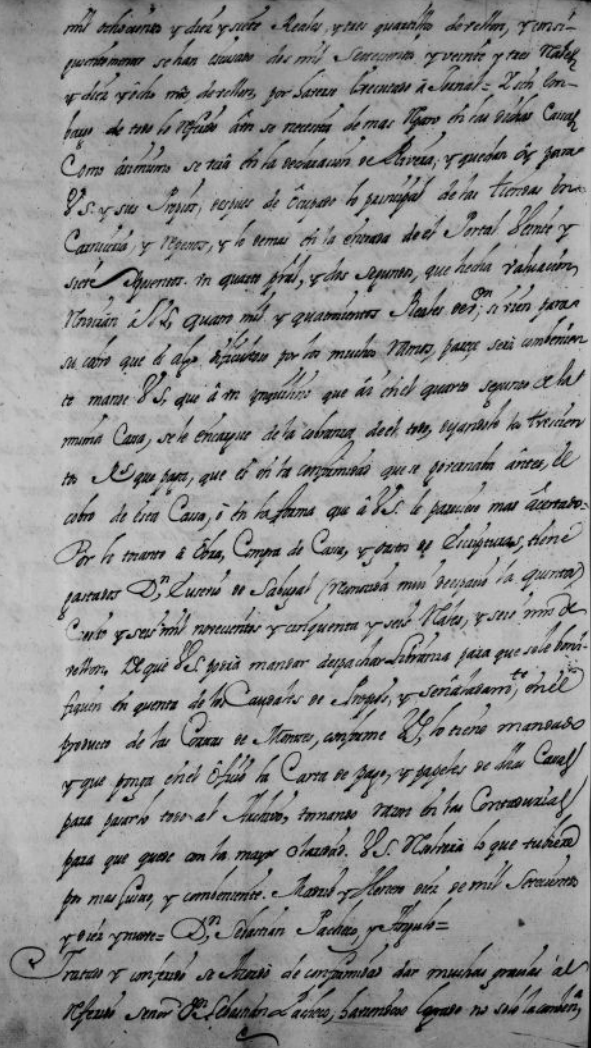 mil ochocientos y diez y siete Reales, y tres quartillos de vellon, y consi-
guientemente se han escusado dos mil Setecientos y veinte y tres Reales
y diez y ocho mrs, de vellon, por haverse executado a Jornal= Y sin em-
bargo de todo lo referido aun se necesita de mas reparo en las dichas Casas
Como asimismo se verá en la declaracion de Rivera; y quedan oy para
V.S. y sus Propios, despues de ocupado lo principal de las tiendas en
Carniceria, y repesos, y lo demas en la entrada de el Portal Veinte y
siete Aposentos. un quarto pral, y dos segundos, que hecha valuacion
Rentarán a V.S, quatro mil y quatrocientos Reales de von; si vien para
su cobro que es algo dificultoso por los muchos ramos, parece será combenien
te mande V.S, que â un inquilino que ai en el quarto segundo de la
misma Casa, se le encargue de la cobranza de el todo, dejandole los trescien
tos Rs que paga, que es en la conformidad que se governaba antes, el
cobro de esta Casa, ô en la forma que â V.S. le pareciere mas acertado=
Por lo tocante a obra, Compra de Casa, y gastos de Escripturas, tiene
gastados Dn, Eusevio de Sabugal
Ciento y seis mil novecientos y cinquenta y seis Reales, y seis mrs de
vellon, De que V.S podrá mandar despachar Libranza para que se le boni-
fiquen en quenta de los Caudales de Propios, y señaladamte, en el
producto de las Corras de Montes, conforme V.S, lo tiene mandado
y que ponga en el oficio la Carta de pago, y papeles de dhas Casas
para pasarlo todo al Archivo, tomando razon en las Contadurias
para que quede con la mayor claridad. V.S. Resolverá lo que tubiere
por mas justo, y combeniente. Madrid y Henero diez de mil Setecientos
y diez y nueve= Dn, Sebastian Pacheco, y Angulo=
Tratado y conferido se Acordó de conformidad dar muchas gracias al
referido señor Dn. Sebastian Pacheco, haviendose logrado no solo la